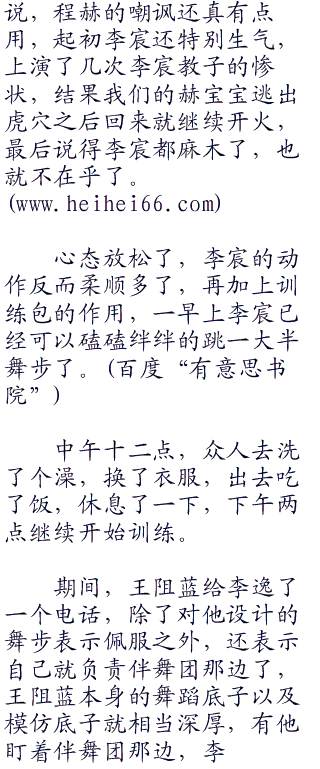 说，程赫的嘲讽还真有点
用，起初李宸还特别生气，
上演了几次李宸教子的惨
状，结果我们的赫宝宝逃出
虎穴之后回来就继续开火，
最后说得李宸都麻木了，也
就不在乎了。
(www.heihei66.com)
心态放松了，李宸的动
作反而柔顺多了，再加上训
练包的作用，一早上李宸已
经可以磕磕绊绊的跳一大半
舞步了。(百度“有意思书
院”)
中午十二点，众人去洗
了个澡，换了衣服，出去吃
了饭，休息了一下，下午两
点继续开始训练。
期间，王阻蓝给李逸了
一个电话，除了对他设计的
舞步表示佩服之外，还表示
自己就负责伴舞团那边了，
王阻蓝本身的舞蹈底子以及
模仿底子就相当深厚，有他
盯着伴舞团那边，李